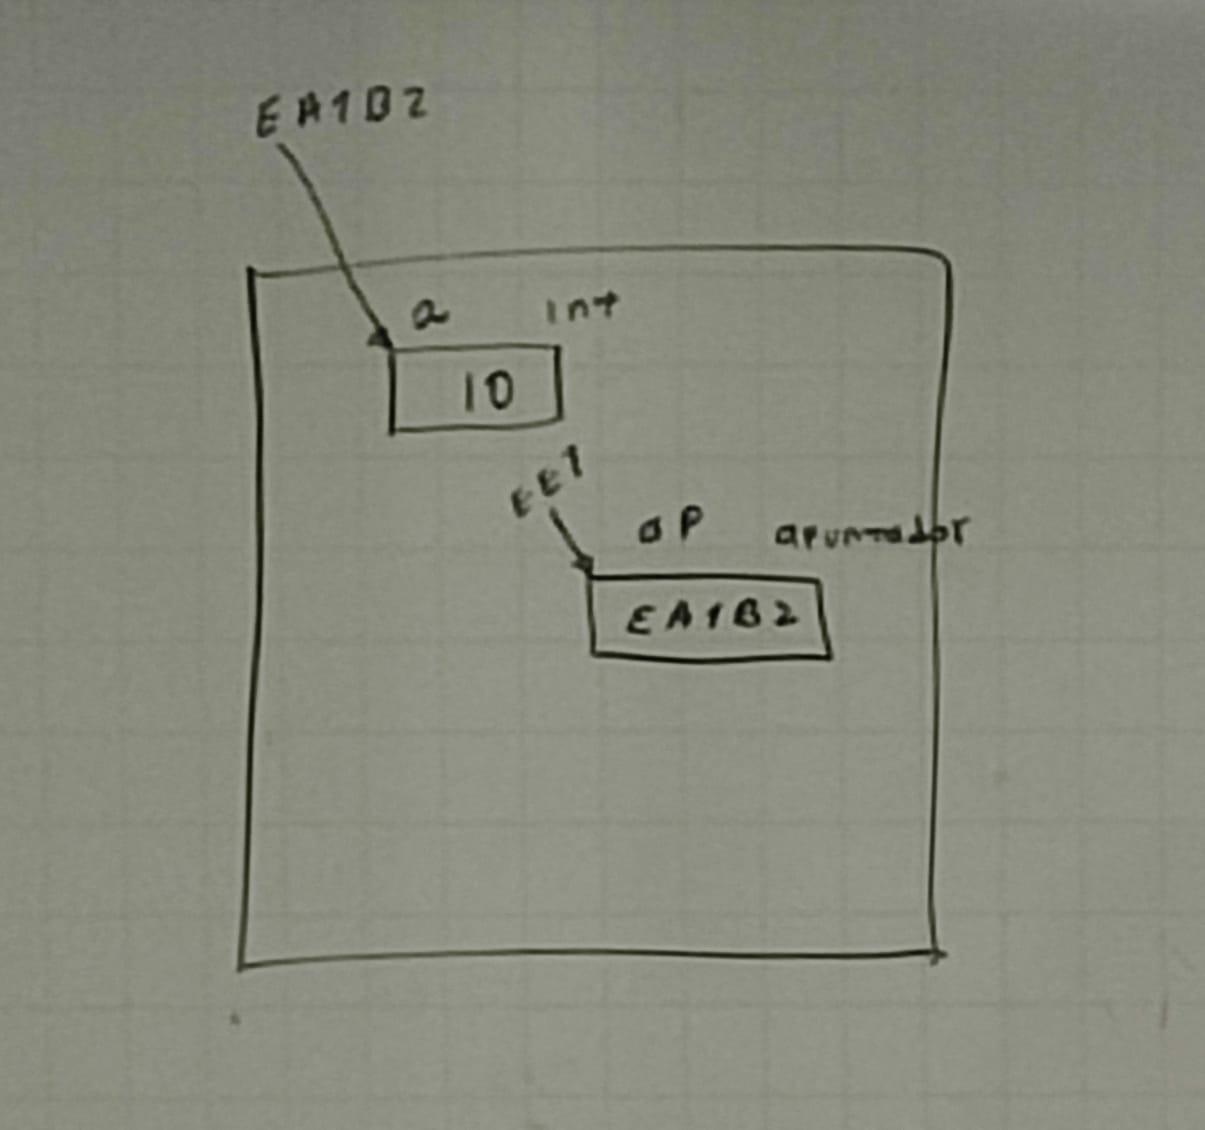 EA1B2
a int
10
EE1
aP apuntador
EA1B2